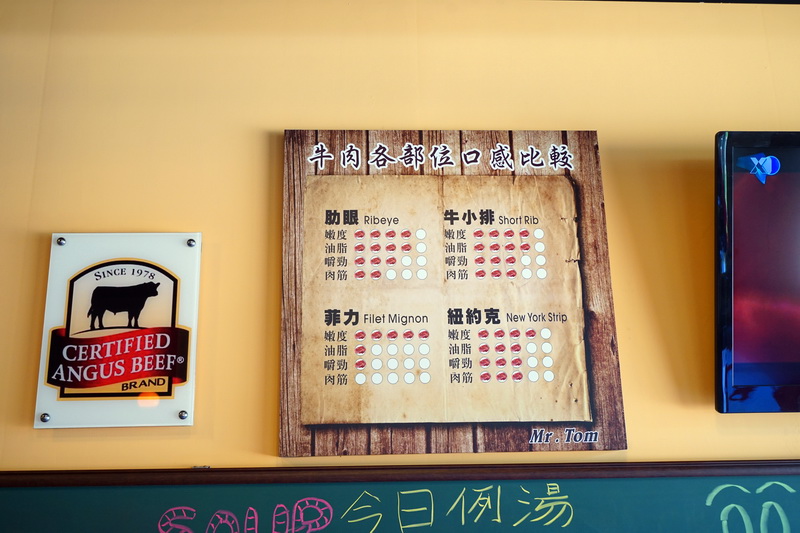 牛肉各部位口感比較
肋眼 Ribeye
嫩度
油脂
嚼勁
肉筋
牛小排 Short Rib
嫩度
油脂
嚼勁
肉筋
菲力 Filet Mignon
嫩度
油脂
嚼勁
肉筋
紐約克 New York Strip
嫩度
油脂
嚼勁
肉筋
Mr. Tom
SINCE 1978
CERTIFIED
ANGUS BEEF®
BRAND
SOUP 今日例湯